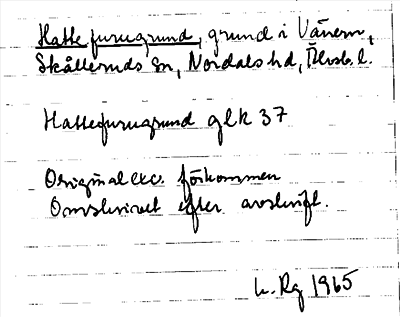 Hattefurugrund, grund i Vänern,
Skålleruds sn, Nordals hd, Älvsb. l.
Hattefurugrund glk 37
Originalexc. förkommen
Omskrivet efter avskrift.
h. Rg 1965